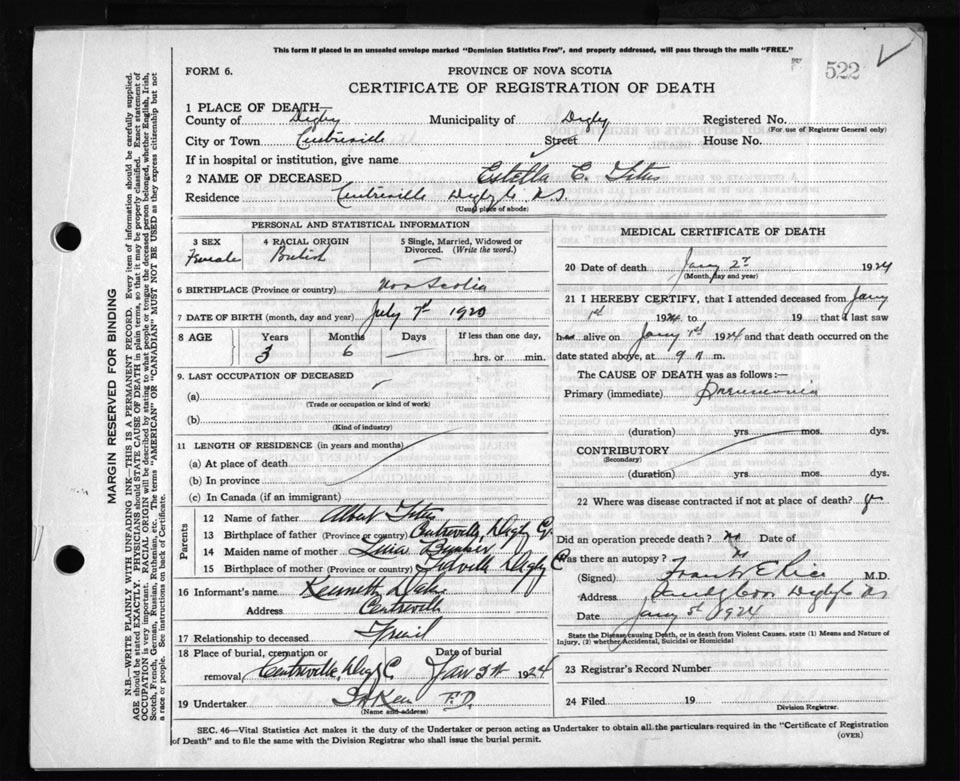 This form if placed in an unsealed envelope marked "Dominion Statistics Free", and properly addressed, will pass through the mails "FREE."
522
FORM 6.
PROVINCE OF NOVA SCOTIA
CERTIFICATE OF REGISTRATION OF DEATH
1 PLACE OF DEATH—
County of Digby Municipality of Digby Registered No.
(For use of Registrar General only)
City or Town Centreville Street House No.
If in hospital or institution, give name
2 NAME OF DECEASED Estella C. Titus
Residence Centreville Digby Co N.S.
(Usual place of abode)
PERSONAL AND STATISTICAL INFORMATION
3 SEX 4 RACIAL ORIGIN 5 Single, Married, Widowed or Divorced. (Write the word.)
Female British —
6 BIRTHPLACE (Province or country) Nova Scotia
7 DATE OF BIRTH (month, day and year) July 7th 1920
8 AGE Years Months Days If less than one day,
3 6 — hrs. or min.
9. LAST OCCUPATION OF DECEASED
(a)
(Trade or occupation or kind of work)
(b)
(Kind of industry)
11 LENGTH OF RESIDENCE (in years and months)
(a) At place of death
(b) In province
(c) In Canada (if an immigrant)
Parents
12 Name of father Albert Titus
13 Birthplace of father (Province or country) Centreville, Digby Co.
14 Maiden name of mother Bunker
15 Birthplace of mother (Province or country) Digby C
16 Informant's name Kenneth
Address Centreville
17 Relationship to deceased Friend
18 Place of burial, cremation or removal Date of burial
Centreville, Digby C Jan 3th 1924
19 Undertaker F.D.
(Name and address)
MEDICAL CERTIFICATE OF DEATH
20 Date of death Jany 2d 1924
(Month, day and year)
21 I HEREBY CERTIFY, that I attended deceased from Jany
1st 1924 to 19 that I last saw
h alive on Jany 1st 1924 and that death occurred on the
date stated above, at 9 m.
The CAUSE OF DEATH was as follows:—
Primary (immediate) Pneumonia
(duration) yrs. mos. dys.
CONTRIBUTORY
(Secondary)
(duration) yrs mos. dys.
22 Where was disease contracted if not at place of death?
Did an operation precede death? no Date of
Was there an autopsy? no
(Signed) Frank E Rice M.D.
Address Sandy Cove Digby Co NS
Date Jany 5th 1924
State the Disease causing Death, or in death from Violent Causes, state (1) Means and Nature of
Injury, (2) whether Accidental, Suicidal or Homicidal
23 Registrar's Record Number
24 Filed 19
Division Registrar.
SEC. 46—Vital Statistics Act makes it the duty of the Undertaker or person acting as Undertaker to obtain all the particulars required in the "Certificate of Registration
of Death" and to file the same with the Division Registrar who shall issue the burial permit.
(OVER)
MARGIN RESERVED FOR BINDING
N.B.—WRITE PLAINLY WITH UNFADING INK—THIS IS A PERMANENT RECORD. Every item of information should be carefully supplied.
AGE should be stated EXACTLY. PHYSICIANS should STATE CAUSE OF DEATH in plain terms, so that it may be properly classified. Exact statement of
OCCUPATION is very important. RACIAL ORIGIN will be described by stating to what people or tongue the deceased person belonged, whether English, Irish,
Scotch, French, German, Russian, Ruthenian, etc. The terms "AMERICAN" OR "CANADIAN" MUST NOT BE USED as they express citizenship but not
a race or people. See instructions on back of Certificate.